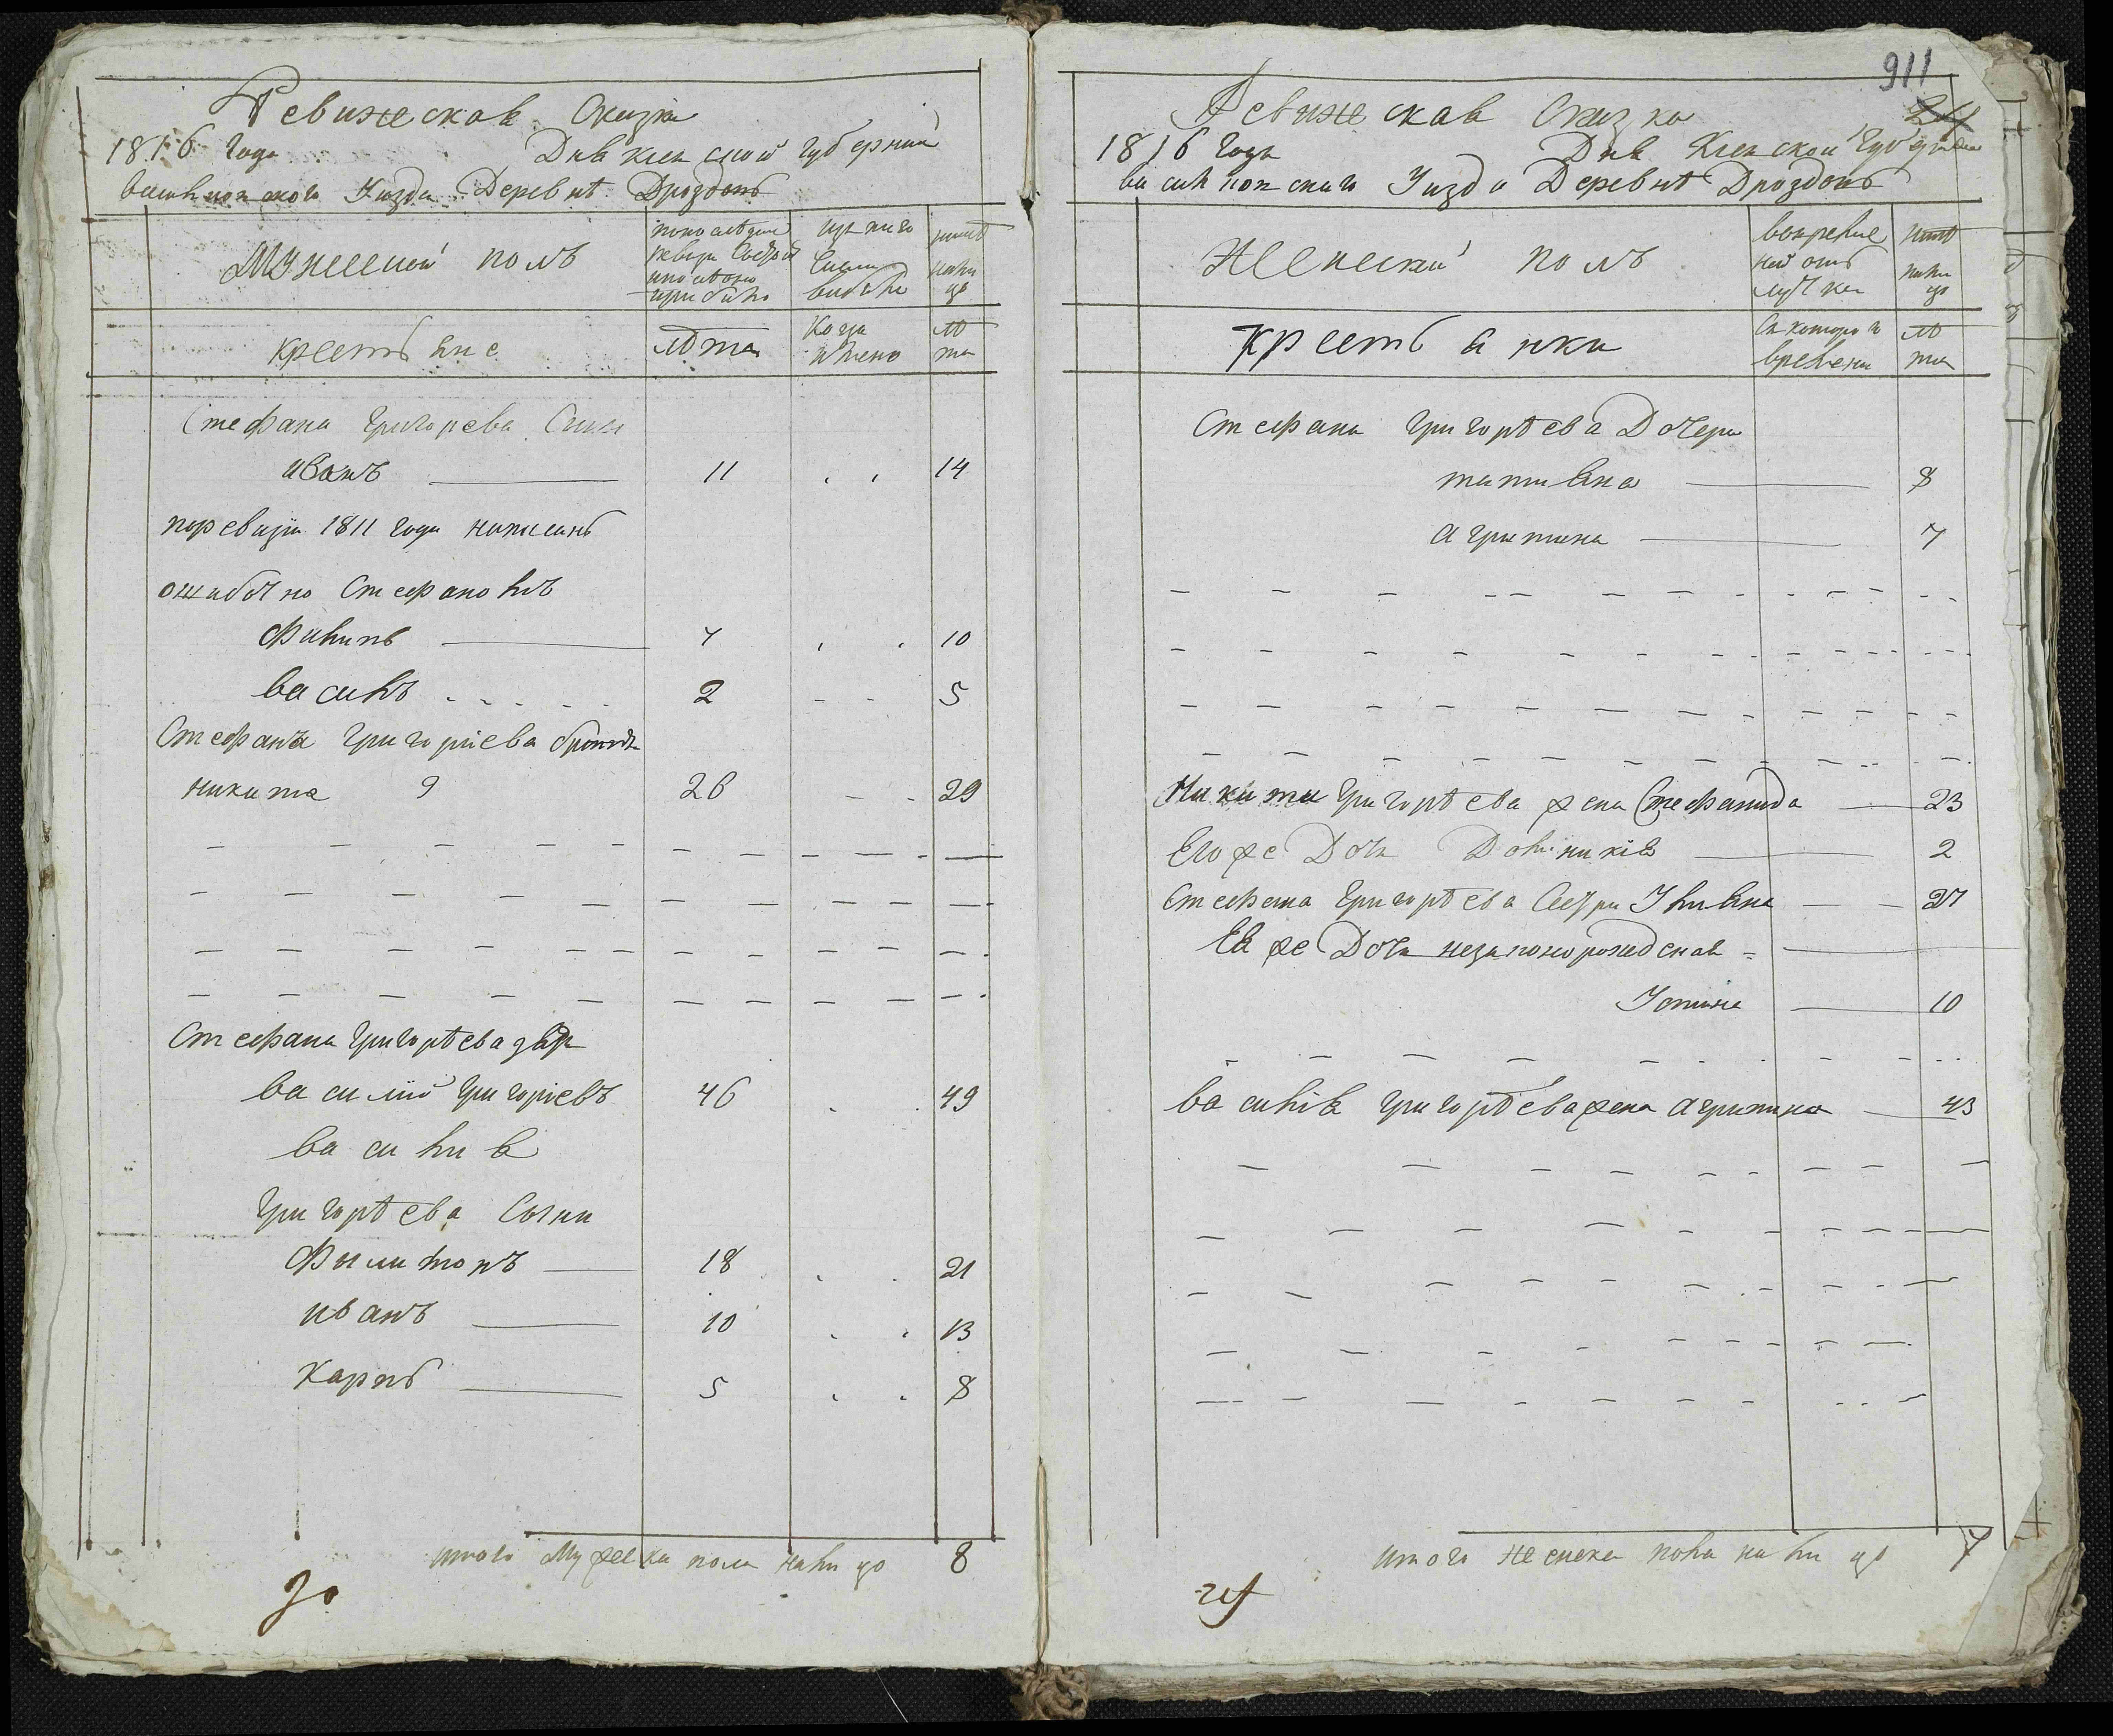 Ревижескаѧ Сказка
1816 года Для Киевской губернии
василковского Уизда Деревнѣ Дроздовъ
Мужеской полъ
по последней ревизи состояло и после оно прибыло
изъ того числа выбыло
ныне на лицо
крестьяне
лѣта
Когда имено
лѣта
Стефана Григорева Сини
иванъ 11 14
поревизи 1811 года написанъ
ошибочно Стефановичъ
Филипъ 7 10
василь 2 5
Стефана Григориева братъ
никита 9 26 29
Стефана Григорѣева дядя
василий Григориевъ 46 49
василия
Григорѣева Сыни
Филимонъ 18 21
иванъ 10 13
Карпъ 5 8
итого мужеска пола налицо 8
911
Ревижескаѧ Сказка
1816 года Для Киевской Губерни
василковскаго Уизда Деревнѣ Дроздовъ
Женский полъ
вовременной отлучке
ныне налицо
крестьянки
Съ которого времени
лѣта
Стефана Григорѣева Дочери
татияна 8
агрипина 7
Никити Григорѣева жена Стефанида 23
Его же Дочь Доминикия 2
Стефана Григорѣева Сестра Улияна 27
Ея же Дочь незаконорождекая
Устина 10
василия григорѣева жена агрипина 43
итого женска пола налицо 7